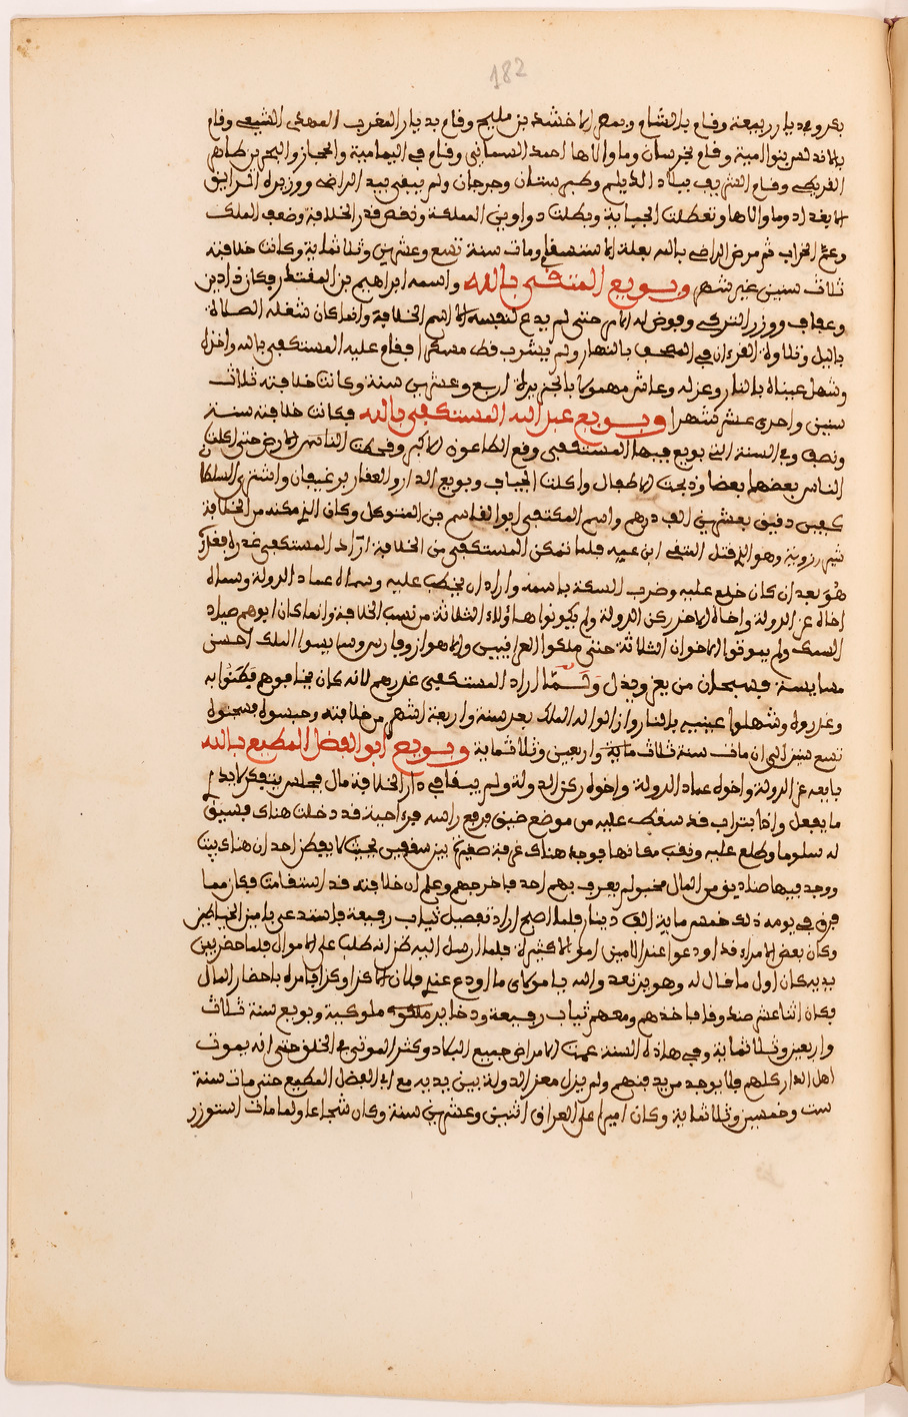 182
بكر وديار ربيعة وقام بالشام وبمصر الاخشد بن مليح وقام بديار المغرب المهدي الشيعي وقام
بالاندلس بنوا امية وقام بخرسان وما والاها احمد السماني وقام في اليمامية والحجاز والبحرين طاهر
القريظي وقام الشريف ببلاد الديلم وطبرستان وجرجان ولم يبقى بيد الراضي ووزيره الرايق
الا بغداد وما والاها وتعطلت الجباية وبطلت دواوين المملكة ونقص قدر الخلافة وضعف الملك
وعم الخراب ثم مرض الراضي بالله بعلة الاستسقا ومات سنة تسع وعشرين وثلاثماية وكانت خلافته
ثلاث سنين غير شهر وبويع المتقي بالله واسمه ابراهيم بن المقتدر وكان ذا دين
وعفاف ووزر التركي وفوض له الامر حتى لم يدع لنفسه الا اسم الخلافة وانما كان شغله الصلاة
باليل وتلاوة القرءان في المصحف بالنهار ولم يشرب قط مسكرا فقام عليه المستكفي بالله واخذه
وشمل عيناه بالنار وعزله وعاش مهمولا بالجزيرة اربع وعشرين سنة وكانت خلافته ثلاث
سنين واحدى عشر شهرا وبويع عبد الله المستكفي بالله فكانت خلافته سنة
ونصف وفي السنة التي بويع فيها المستكفي وقع الطاعون الاكبر وقحطت الناس الارض حتى اكلت
الناس بعضهم بعضا وذبحت الاطفال واكلت الجياف وبويع الدار والعقار برغيفان واشترى السلطان
كفين دقيق بعشرين الف درهم واسم المكتفي ابوا القاسم بن المتوكل وكان الذي مكنه من الخلافة
شيرزوية وهو الذي قتل المتقي ابن عميه فلما تمكن المستكفي من الخلافة اراد المستكفي غدره فغدره
هو بعد ان كان خلع عليه وضرب السكة باسمه واراد ان يخطب عليه وسماه عماد الدولة وسماه
اخاه عز الدولة واخاه الاخر ركن الدولة ولم يكونوا هاؤلاء الثلاثة من نسب الخلافة وانما كان ابوهم صياد
السمك ولم يبوقوا الاخوان الثلاثة حتى ملكوا العراقيين والاهواز وفارس وسايسوا الملك احسن
مسايسة فسبحان من يعز ويذل ولما اراد المستكفي غدرهم لانه كان يخافوهم فظنوا به
وغدروه وشهلوا عينيه بالنار وازالوا له الملك بعد سنة واربعة اشهر من خلافته وحبسوه فسجنوه
تسع سنين الى ان مات سنة ثلاث ماية واربعين وثلاثماية وبويع ابو الفضل المطيع بالله
بايعه عز الدولة واخوه عماد الدولة واخوه ركن الدولة ولم يبقا في دار الخلافة مال فجلس يتفكر كيف
ما يفعل واذا بتراب قد سقط عليه من موضع خفي فرفع راسه فرءا حية قد دخلت هناك فسيق
له سلوما وطلع عليه ونقب مكانها فوجد هناك غرفة صغيرة بين سقفين بحيث لا يفطن احد ان هناك بيت
ووجد فيها صناديق من المال مخبو لم يعرف بهم احد فاخرجهم وعلم ان خلافته قد استقامت فكان مما
فرق في يومه ذلك خمسماية الف دينار فلما اصبح اراد تفصيل ثياب رفيعة فاستدعى بامين الخياطين
وكان بعض الامراء قد اودعوا عند الامين اموالا كثيرة فلما ارسل اليه ظن انه طلب على الاموال فلما حضر بين
يديه كان اول ما قال له وهو يرتعد والله يا مولاي ما اودع عندي فلان الا كذا وكذا فامره باحضار المال
فكان اثنا عشر صندوقا فاخذهم ومعهم ثياب رفيعة ودخاير ملوكه ملوكية وبويع سنة ثلاث
واربعين وثلاثماية وفي هاذه السنة عمت الامراض جميع البلاد وكثر الموتى في الخلق حتى انه يموت
اهل الدار كلهم فلا يوجد من يدفنهم ولم يزل معز الدولة بين يديه مع ابي الفضل المطيع حتى مات سنة
ست وخمسين وثلاثماية وكان اميرا على العراق اثنين وعشرين سنة وكان شجاعا ولما مات استوزر